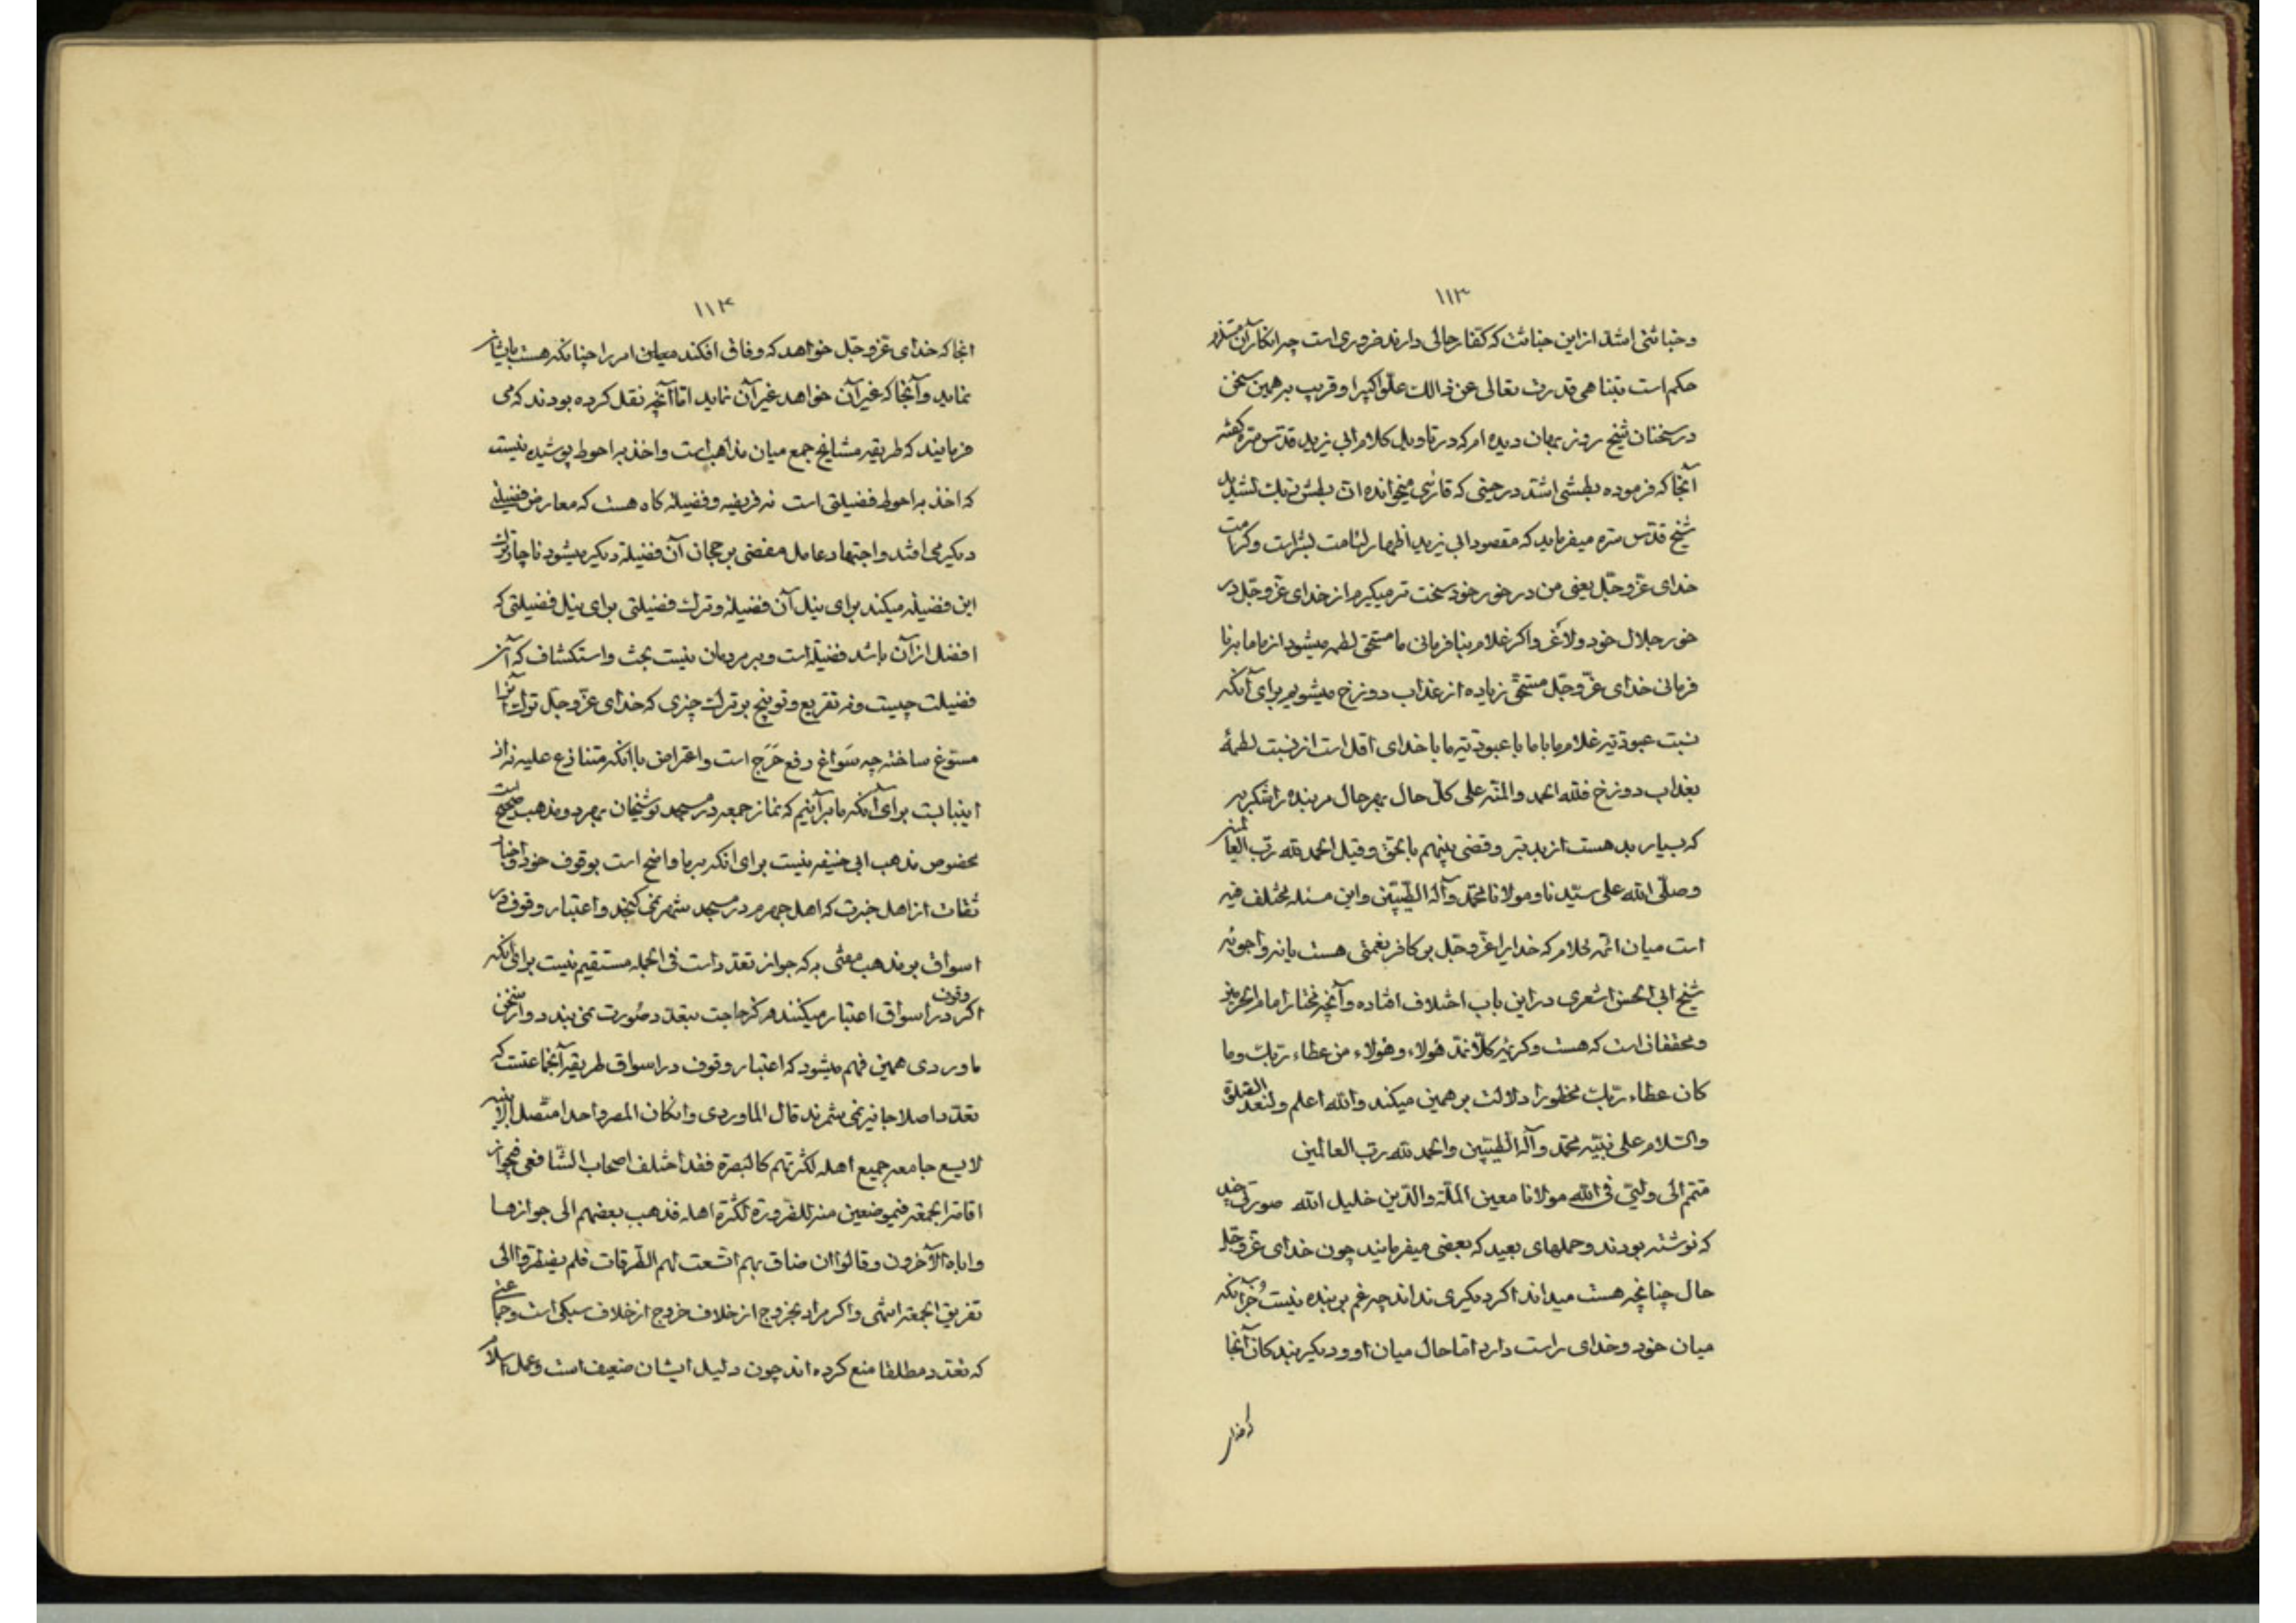 ۱۱۳
و خباثتی اشد از این خباثت که کفار حالی دارند ضروری است چه انکار آن مستلزم
حکم است بتناهی قدرت تعالی عن ذالک علوا کبیرا و قریب بر همین سخن
در سخنان شیخ روزبهان دیده‌ام که در تاویل کلام ابی یزید قدس سره گفته
آنجا که فرموده بطشی اشد در حینی که قاری میخوانده ان بطش ربک لشدید
شیخ قدس سره میفرماید که مقصود ابی یزید اظهار لئامت بشر است و کرامت
خدای عز و جل یعنی من در خور خود سخت‌تر میگیرم از خدای عز و جل در
خور جلال خود ولاغر و اکر غلام بنافرمانی ما مستحق لطمه میشود از ما ما بنا
فرمانی خدای عز و جل مستحق زیاده از عذاب دوزخ میشویم برای آنکه
نسبت عبودتیه غلام ما با ما با عبودتیه ما با خدای اقل است از نسبت لطمهٔ
بعذاب دوزخ فلله الحمد والمنه علی کل حال بهر حال مر بنده را شکر به
که بسیار بد هست از بد بتر و قضی بینهم بالحق و قیل الحمد لله رب العالمین
و صلی الله علی سیدنا و مولانا محمد و آله الطیبین و این مسئله مختلف فیه
است میان ائمه کلام که خدایرا عز و جل بر کافر نعمتی هست یا نه و اجوبه
شیخ ابی الحسن اشعری در این باب اختلاف افتاده و آنچه مختار امام الحرمین
و محققان است که هست و کریمه کلا نمد هؤلاء و هؤلاء من عطاء ربک و ما
کان عطاء ربک محظورا دلالت بر همین میکند والله اعلم و لنعد الصلوة
والسلام علی نبیه محمد و آله الطیبین والحمد لله رب العالمین
الی ولیی فی الله مولانا معین الملة والدین خلیل الله صورتی چند
که نوشته بودند و حملهای بعید که بعضی میفرمایند چون خدای عز و جل
حال چنانچه هست میداند اکر دیکری نداند چه غم بر بنده نیست جز آنکه
میان خود و خدای راست دارد اما حال میان او و دیکر بندکان آنجا
۱۱۴
انجا که خدای عز و جل خواهد که وفاق افکند معاین امر را چنانکه هست بایشان
نماید و آنجا که غیر آن خواهد غیر آن نماید اما آنچه نقل کرده بودند که می
فرمایند که طریقه مشایخ جمع میان مذاهب است و اخذ به احوط پوشیده نیست
که اخذ به احوط فضیلتی است نه فریضه و فضیله کاه هست که معارض فضیلتی
دیکر می افتد و اجتهاد عامل مفضی برجحان آن فضیلة دیکر میشود ناچار ترک
این فضیله میکند برای نیل آن فضیلة و ترک فضیلتی برای نیل فضیلتی که
افضل از آن باشد فضیلة است و بر مردمان نیست بحث و استکشاف که آن
فضیلت چیست و نه تقریع و توبیخ بر ترک چیزی که خدای عز و جل ترک آنرا
مستوغ ساخته چه سواغ رفع حرج است و اعتراض با آنکه متنازع علیه نه از
اینبابست برای آنکه ما بر آنیم که نماز جمعه در مسجد نوشیخان بهر دو مذهب صحیح است
بخصوص مذهب ابی حنیفه نیست برای انکه بر ما واضح است بوقوف خود و اخبار
ثقات از اهل خبرت که اهل جهرم در مسجد شهر نمی‌کنجد و اعتبار وقوف در
اسواق بر مذهب مفتی به که جواز تعدد است فی الجمله مستقیم نیست برای آنکه
اکر وقوف در اسواق اعتبار میکنند هرکز حاجت بتعدد صورت نمی‌بندد و از سخن
ماوردی همین فهم میشود که اعتبار وقوف در اسواق طریقه آنجماعتست که
تعدد اصلا جایز نمی‌شمرند قال الماوردی و ان کان المصر واحدا متصل الابنیه
لا یسع جامعه جمیع اهله لکثرتهم کالبصرة فقد اختلف اصحاب الشافعی فی جواز
اقامة الجمعة فی موضعین منه للضرورة لکثرة اهله فذهب بعضهم الی جوازها
و اباه الآخرون و قالوا ان ضاق بهم اتسعت لهم الطرقات فلم یضطروا الی
تفریق الجمعة انتهی و اکر مراد بخروج از خلاف خروج از خلاف سبکی است و جماعتی
که تعدد مطلقا منع کرده‌اند چون دلیل ایشان ضعیف است و عمل اسلام